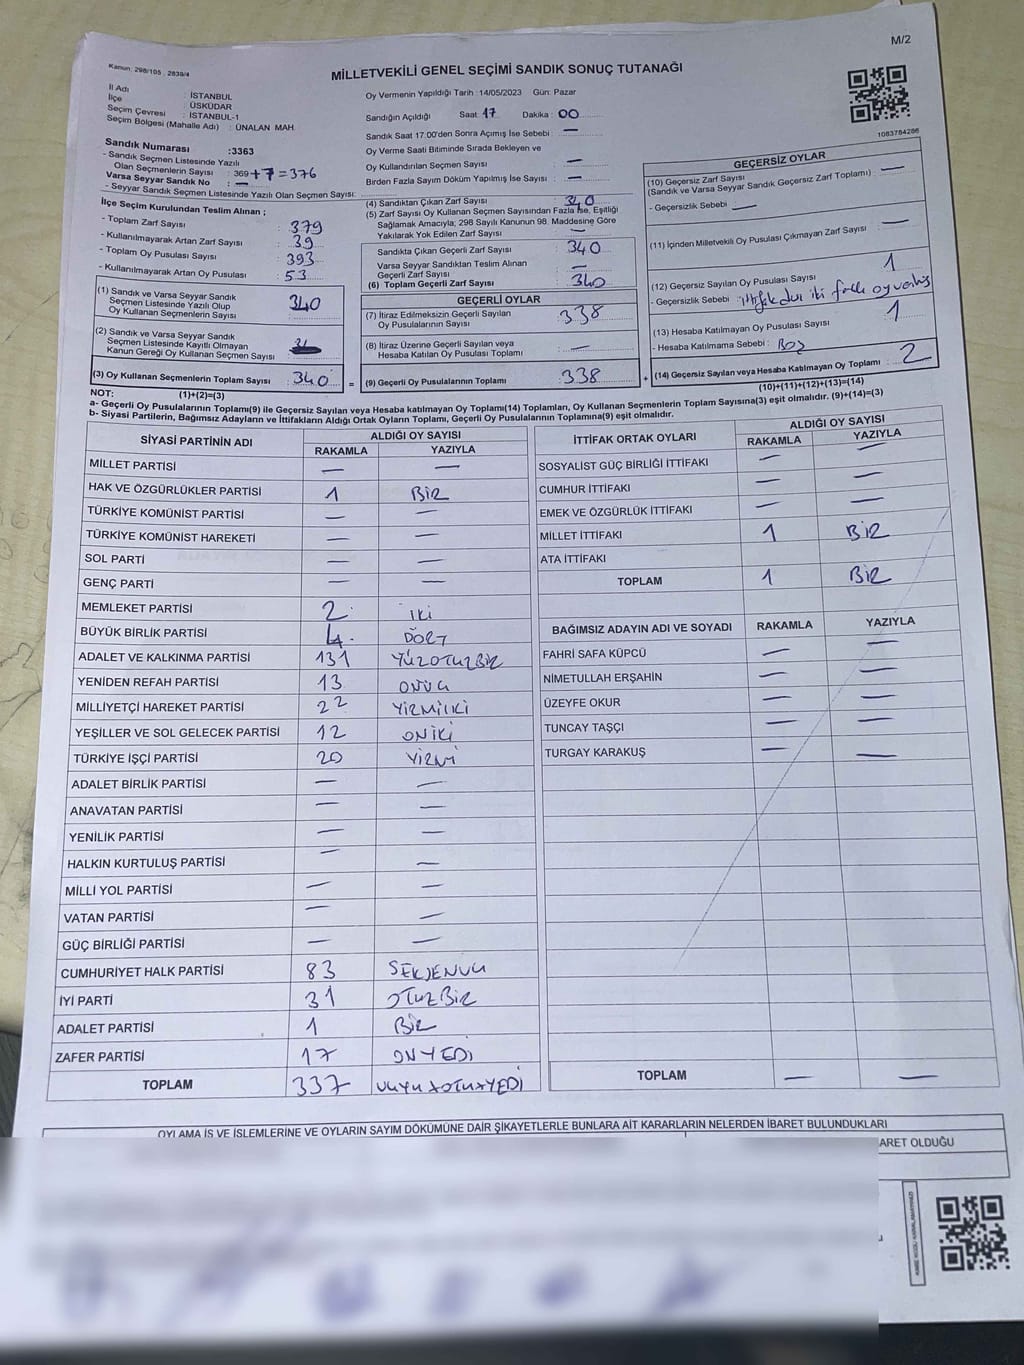 M/2
Kanun: 298/105 , 2839/4
MİLLETVEKİLİ GENEL SEÇİMİ SANDIK SONUÇ TUTANAĞI
İl Adı : İSTANBUL
İlçe : ÜSKÜDAR
Seçim Çevresi : İSTANBUL-1
Seçim Bölgesi (Mahalle Adı) : ÜNALAN MAH.
Sandık Numarası :3363
- Sandık Seçmen Listesinde Yazılı
Olan Seçmenlerin Sayısı : 369 +7=376
Varsa Seyyar Sandık No : —
- Seyyar Sandık Listesinde Yazılı Olan Seçmen Sayısı:
İlçe Seçim Kurulundan Teslim Alınan ;
- Toplam Zarf Sayısı : 379
- Kullanılmayarak Artan Zarf Sayısı : 39
- Toplam Oy Pusulası Sayısı : 393
- Kullanılmayarak Artan Oy Pusulası : 53
(1) Sandık ve Varsa Seyyar Sandık
Seçmen Listesinde Yazılı Olup
Oy Kullanan Seçmenlerin Sayısı : 340
(2) Sandık ve Varsa Seyyar Sandık
Seçmen Listesinde Kayıtlı Olmayan
Kanun Gereği Oy Kullanan Seçmen Sayısı :
(3) Oy Kullanan Seçmenlerin Toplam Sayısı : 340 =
Oy Vermenin Yapıldığı Tarih : 14/05/2023 Gün: Pazar
Sandığın Açıldığı Saat : 17 Dakika : 00
Sandık Saat 17.00'den Sonra Açımış İse Sebebi : —
Oy Verme Saati Bitiminde Sırada Bekleyen ve
Oy Kullandırılan Seçmen Sayısı : —
Birden Fazla Sayım Döküm Yapılmış İse Sayısı : —
(4) Sandıktan Çıkan Zarf Sayısı : 340
(5) Zarf Sayısı Oy Kullanan Seçmen Sayısından Fazla İse, Eşitliği
Sağlamak Amacıyla; 298 Sayılı Kanunun 98. Maddesine Göre
Yakılarak Yok Edilen Zarf Sayısı : —
Sandıkta Çıkan Geçerli Zarf Sayısı : 340
Varsa Seyyar Sandıktan Teslim Alınan
Geçerli Zarf Sayısı : —
(6) Toplam Geçerli Zarf Sayısı : 340
GEÇERLİ OYLAR
(7) İtiraz Edilmeksizin Geçerli Sayılan
Oy Pusulalarının Sayısı : 338
(8) İtiraz Üzerine Geçerli Sayılan veya
Hesaba Katılan Oy Pusulası Toplamı : —
(9) Geçerli Oy Pusulalarının Toplamı : 338 +
1083784286
GEÇERSİZ OYLAR
(10) Geçersiz Zarf Sayısı
(Sandık ve Varsa Seyyar Sandık Geçersiz Zarf Toplamı) : —
- Geçersizlik Sebebi : —
(11) İçinden Milletvekili Oy Pusulası Çıkmayan Zarf Sayısı : —
(12) Geçersiz Sayılan Oy Pusulası Sayısı : 1
- Geçersizlik Sebebi : iki
(13) Hesaba Katılmayan Oy Pusulası Sayısı : 1
- Hesaba Katılmama Sebebi : Boş
(14) Geçersiz Sayılan veya Hesaba Katılmayan Oy Toplamı : 2
NOT: (1)+(2)=(3) (10)+(11)+(12)+(13)=(14)
a- Geçerli Oy Pusulalarının Toplamı(9) ile Geçersiz Sayılan veya Hesaba katılmayan Oy Toplamı(14) Toplamları, Oy Kullanan Seçmenlerin Toplam Sayısına(3) eşit olmalıdır. (9)+(14)=(3)
b- Siyasi Partilerin, Bağımsız Adayların ve İttifakların Aldığı Ortak Oyların Toplamı, Geçerli Oy Pusulalarının Toplamına(9) eşit olmalıdır.
SİYASİ PARTİNİN ADI ALDIĞI OY SAYISI
RAKAMLA YAZIYLA
MİLLET PARTİSİ — —
HAK VE ÖZGÜRLÜKLER PARTİSİ 1 BİR
TÜRKİYE KOMÜNİST PARTİSİ — —
TÜRKİYE KOMÜNİST HAREKETİ — —
SOL PARTİ — —
GENÇ PARTİ — —
MEMLEKET PARTİSİ 2 İKİ
BÜYÜK BİRLİK PARTİSİ 4 DÖRT
ADALET VE KALKINMA PARTİSİ 131 YÜZOTUZBİR
YENİDEN REFAH PARTİSİ 13 ONÜÇ
MİLLİYETÇİ HAREKET PARTİSİ 22 YİRMİİKİ
YEŞİLLER VE SOL GELECEK PARTİSİ 12 ONİKİ
TÜRKİYE İŞÇİ PARTİSİ 20 YİRMİ
ADALET BİRLİK PARTİSİ — —
ANAVATAN PARTİSİ — —
YENİLİK PARTİSİ — —
HALKIN KURTULUŞ PARTİSİ — —
MİLLİ YOL PARTİSİ — —
VATAN PARTİSİ — —
GÜÇ BİRLİĞİ PARTİSİ — —
CUMHURİYET HALK PARTİSİ 83 SEKSENÜÇ
İYİ PARTİ 31 OTUZBİR
ADALET PARTİSİ 1 BİR
ZAFER PARTİSİ 17 ONYEDİ
TOPLAM 337 ÜÇYÜZOTUZYEDİ
İTTİFAK ORTAK OYLARI ALDIĞI OY SAYISI
RAKAMLA YAZIYLA
SOSYALİST GÜÇ BİRLİĞİ İTTİFAKI — —
CUMHUR İTTİFAKI — —
EMEK VE ÖZGÜRLÜK İTTİFAKI — —
MİLLET İTTİFAKI 1 BİR
ATA İTTİFAKI
TOPLAM 1 BİR
BAĞIMSIZ ADAYIN ADI VE SOYADI RAKAMLA YAZIYLA
FAHRİ SAFA KÜPCÜ — —
NİMETULLAH ERŞAHİN — —
ÜZEYFE OKUR — —
TUNCAY TAŞÇI — —
TURGAY KARAKUŞ — —
TOPLAM — —
OYLAMA İŞ VE İŞLEMLERİNE VE OYLARIN SAYIM DÖKÜMÜNE DAİR ŞİKAYETLERLE BUNLARA AİT KARARLARIN NELERDEN İBARET BULUNDUKLARI
ARET OLDUĞU